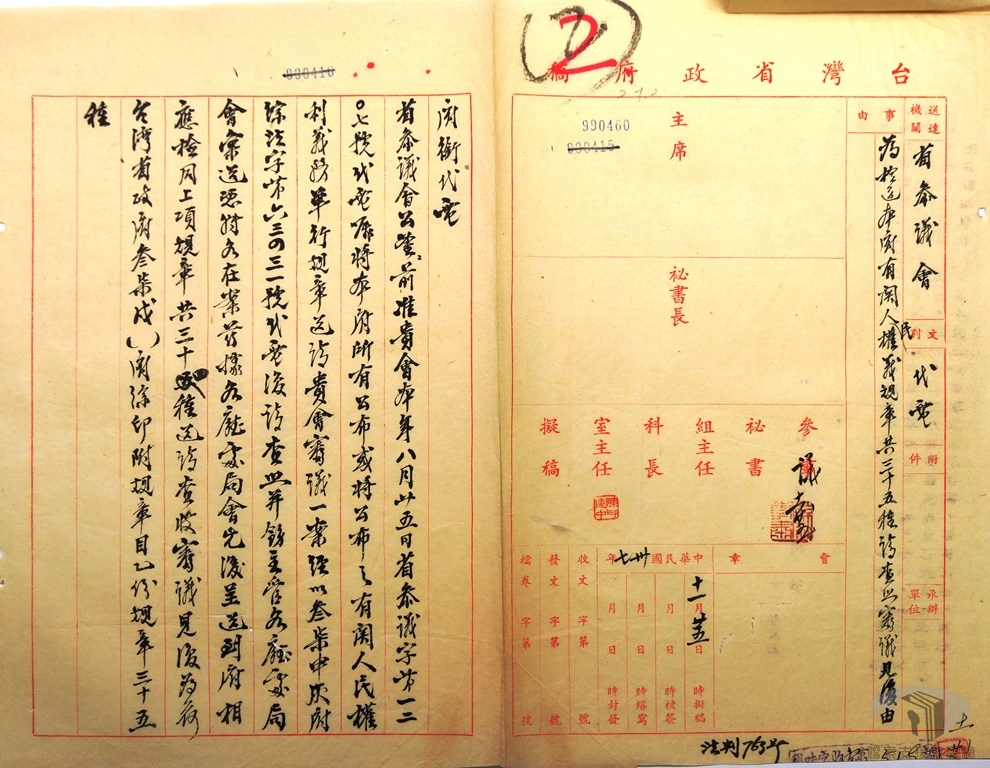 台灣省政府稿
2
272
990460
990415
送達機關
省參議會
文別
代電
附件
承辦單位
事由
為檢送本府有関人民權義規章共三十五種請查照審議見復由
主席
秘書長
參
議
秘書
組主任
科長
室主任
擬稿
會章
中華民國卅七年
十一月廿五日 時擬稿
月 日 時核簽
月 日 時繕寫
月 日 時封發
收文 字第 號
發文 字第 號
檔卷 字第 號
法判763号
990416
府衡代電
省参議會公鑒:前准貴會本年八月廿五日省参議字第一二
〇七號代電囑將本府所有公布或將公布之有関人民權
利義務單行規章送請貴會審議一案經以叁柒申灰府
綜法字第六三四三一號代電復請查照并飭主管各廳處局
會彙送憑辦各在案茲據各廳處局會先後呈送到府相
應檢同上項規章共三十四種送請查收審議見復為荷
台灣省政府叁柒戌( )府綜印附規章目乙份規章三十五
種